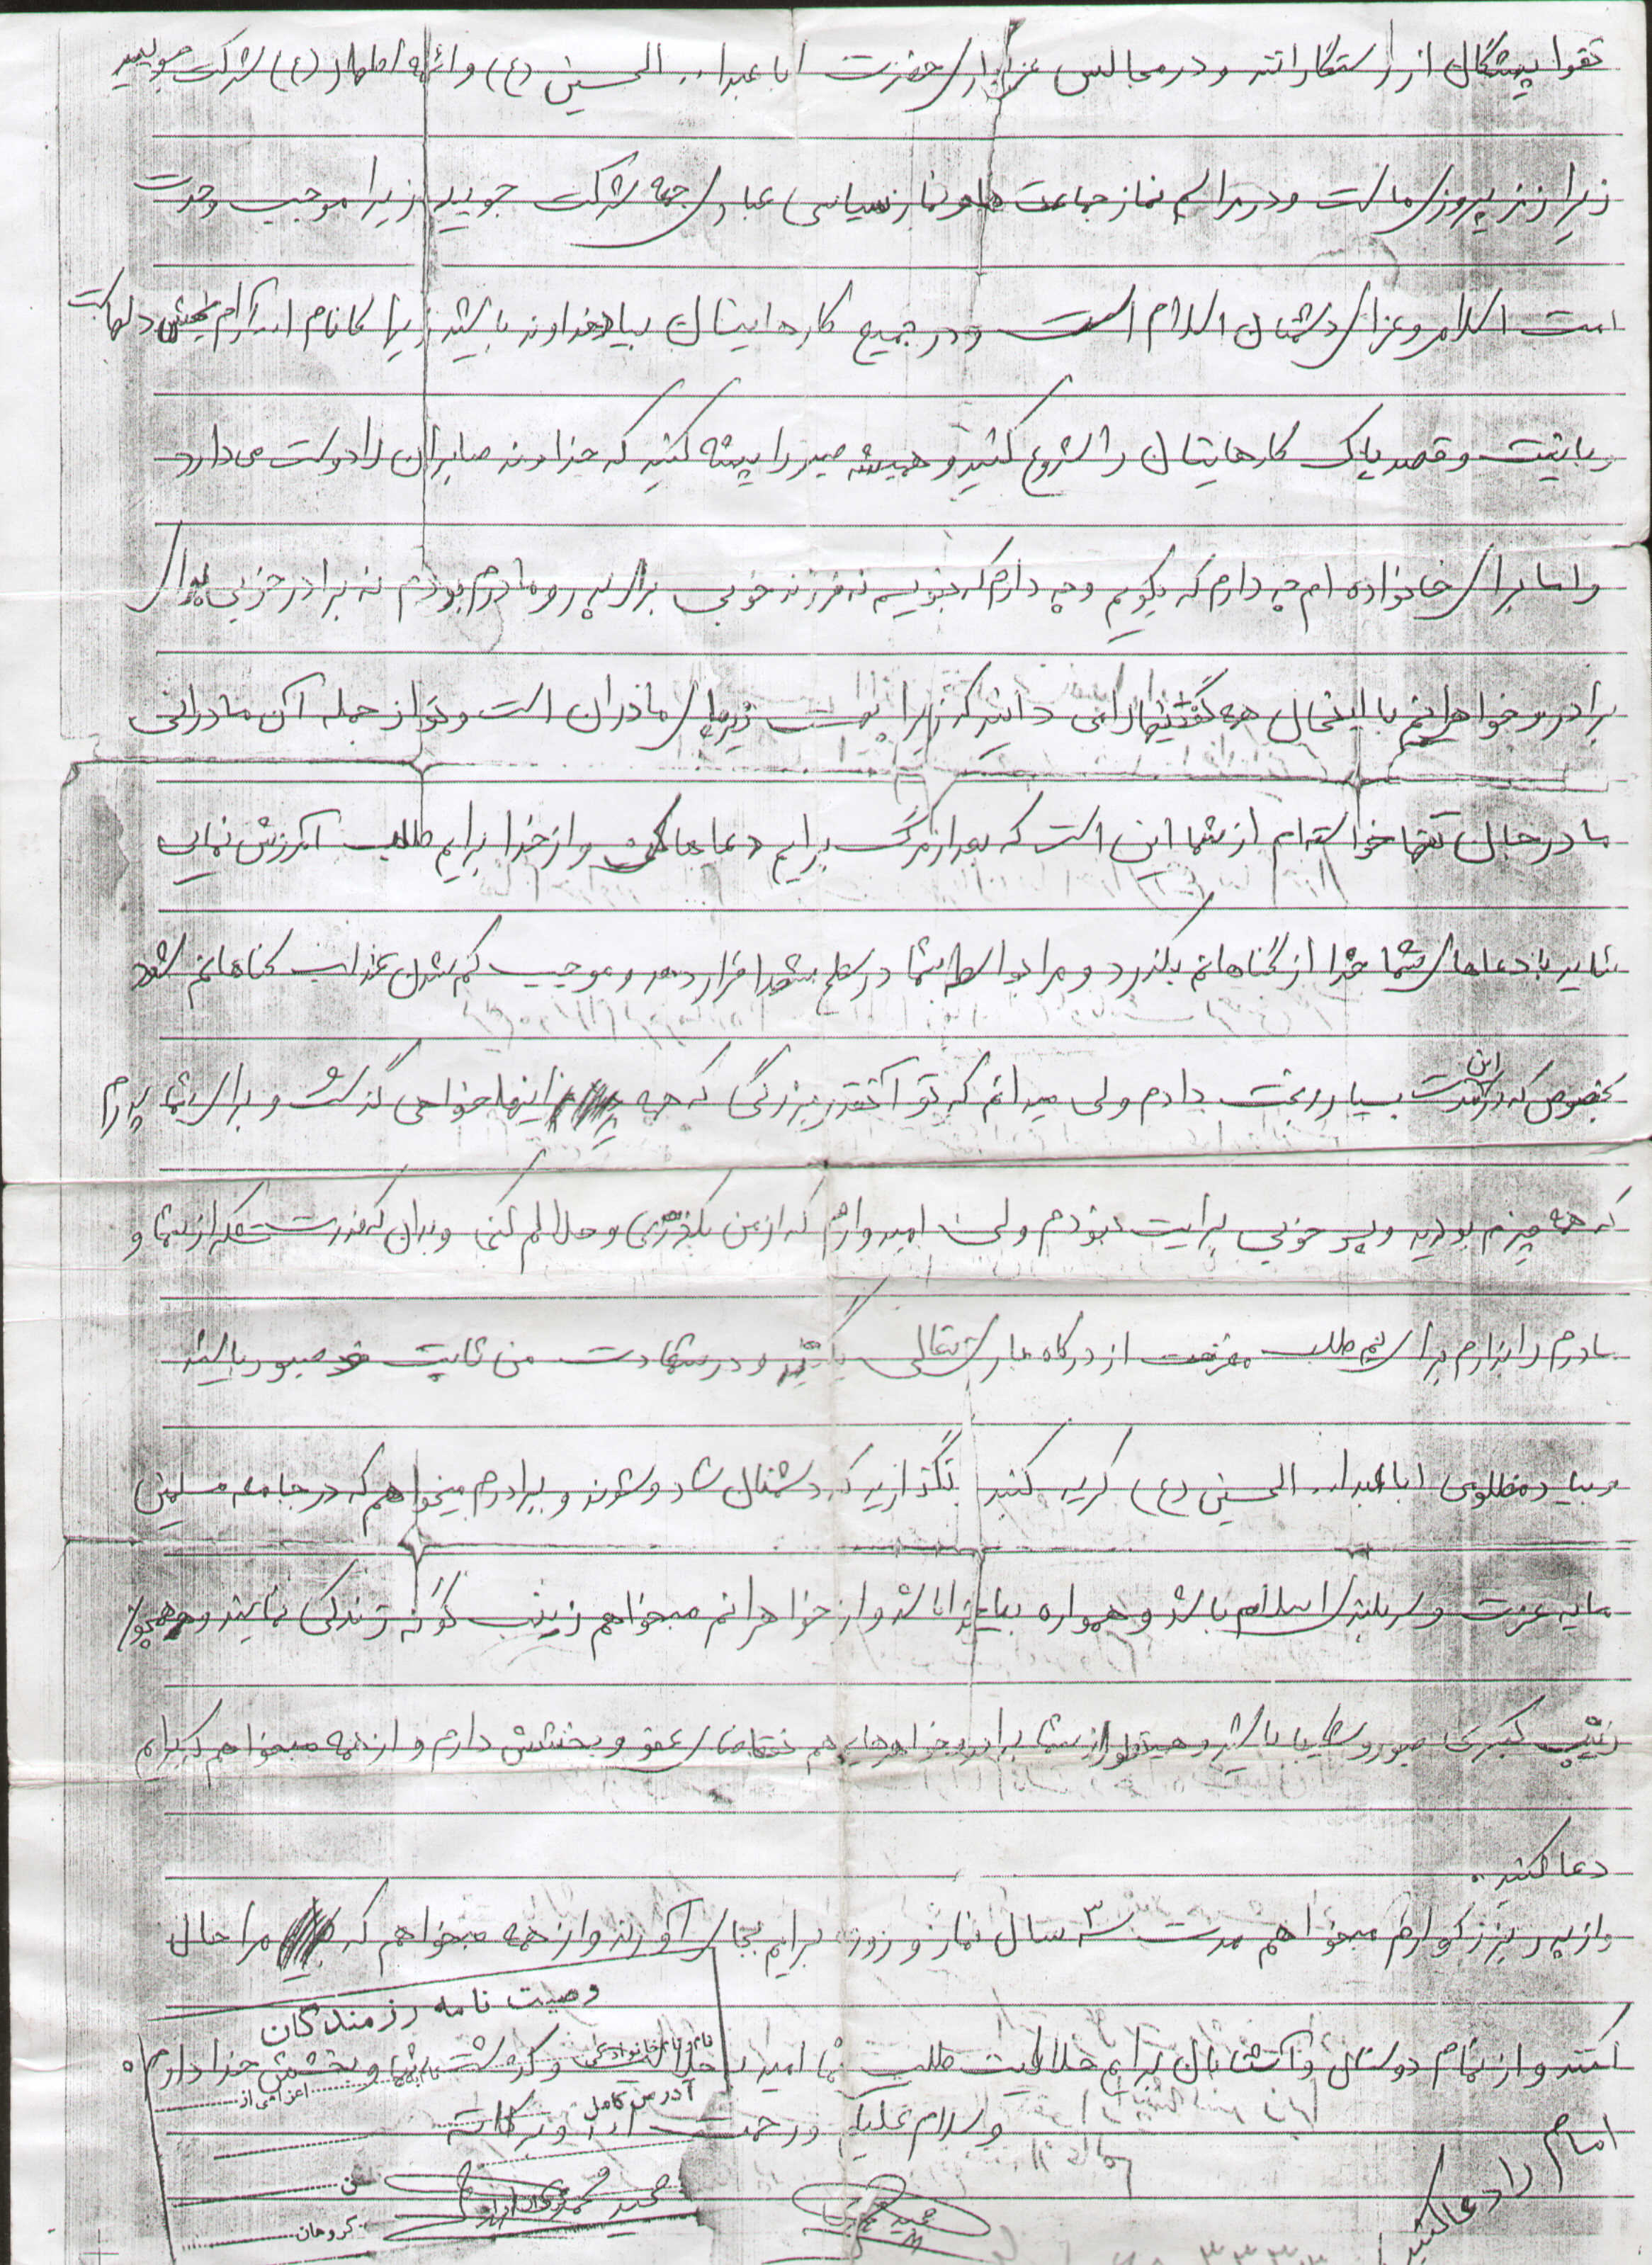 تقوا پیشگان از رستگارانند و در مجالس عزاداری حضرت اباعبدا... الحسین (ع) و ائمه اطهار (ع) شرکت جویید
زیرا رمز پیروزی ماست و در مراسم نماز جماعت ها و نماز سیاسی عبادی جمعه شرکت جویید زیرا موجب وحدت
امت اسلام و عزای دشمنان اسلام است و در جمیع کارهایتان بیاد خداوند باشید زیرا که نام ا... آرام بخش دلهاست
و با نیت و قصد پاک کارهایتان را شروع کنید و همیشه صبر را پیشه کنید که خداوند صابران را دوست می دارد
و اما برای خانواده ام چه دارم که بگویم و چه دارم که بنویسم نه فرزند خوبی برای پدر و مادرم بودم نه برادر خوبی برای
برادر و خواهرانم با اینحال همه گفتنیها را می دانید که زیرا بهشت زیر پای مادران است و تو از جمله آن مادرانی
مادر جان تنها خواسته ام از شما این است که بعد از مرگ برایم دعا کنی و از خدا برایم طلب آمرزش نمایی
شاید با دعاهای شما خدا از گناهانم بگذرد و مرا بواسطه شما در سطح شهدا قرار دهد و موجب کم شدن عذاب گناهانم شود
بخصوص که در این مدت بسیار زحمت دادم ولی میدانم که تو آنقدر بزرگی که همه اینها خواهی گذشت و برای شما پدرم
که همه چیزم بودید و پسر خوبی برایت نبودم ولی امیدوارم که از من بگذری و حلالم کنی و بدان که فرزندت از شما و
مادرم را دارم برایم طلب مغفرت از درگاه باری تعالی بکنید و در شهادت من ثابت و صبور باشید
و بیاد مظلومی اباعبدا... الحسین (ع) گریه کنید نگذارید که دشمنان شاد شوند و برادرم میخواهم که در جامعه مسلمین
مایه عزت و سربلندی اسلام باشد و همواره بیاد خدا باشد و از خواهرانم میخواهم زینب گونه زندگی نمایند و همچون
زینب کبری صبور و شکیبا باشید و همینطور از شما برادر و خواهرهایم هم تقاضای عفو و بخشش دارم و از همه میخواهم که برایم
دعا کنید.
و از پدر بزرگوارم میخواهم مدت ۳ سال نماز و روزه برایم بجای آورند و از همه میخواهم که مرا حلال
کنند و از تمام دوستان و آشنایان برایم حلالیت طلب نما امید حلالیت و گذشت شما و بخشش خدا دارم
والسلام علیکم و رحمت ا... و برکاته
امام را دعا کنید
وصیت نامه رزمندگان
نام و نام خانوادگی
نام پدر
اعزامی از
آدرس کامل
سن
گروهان